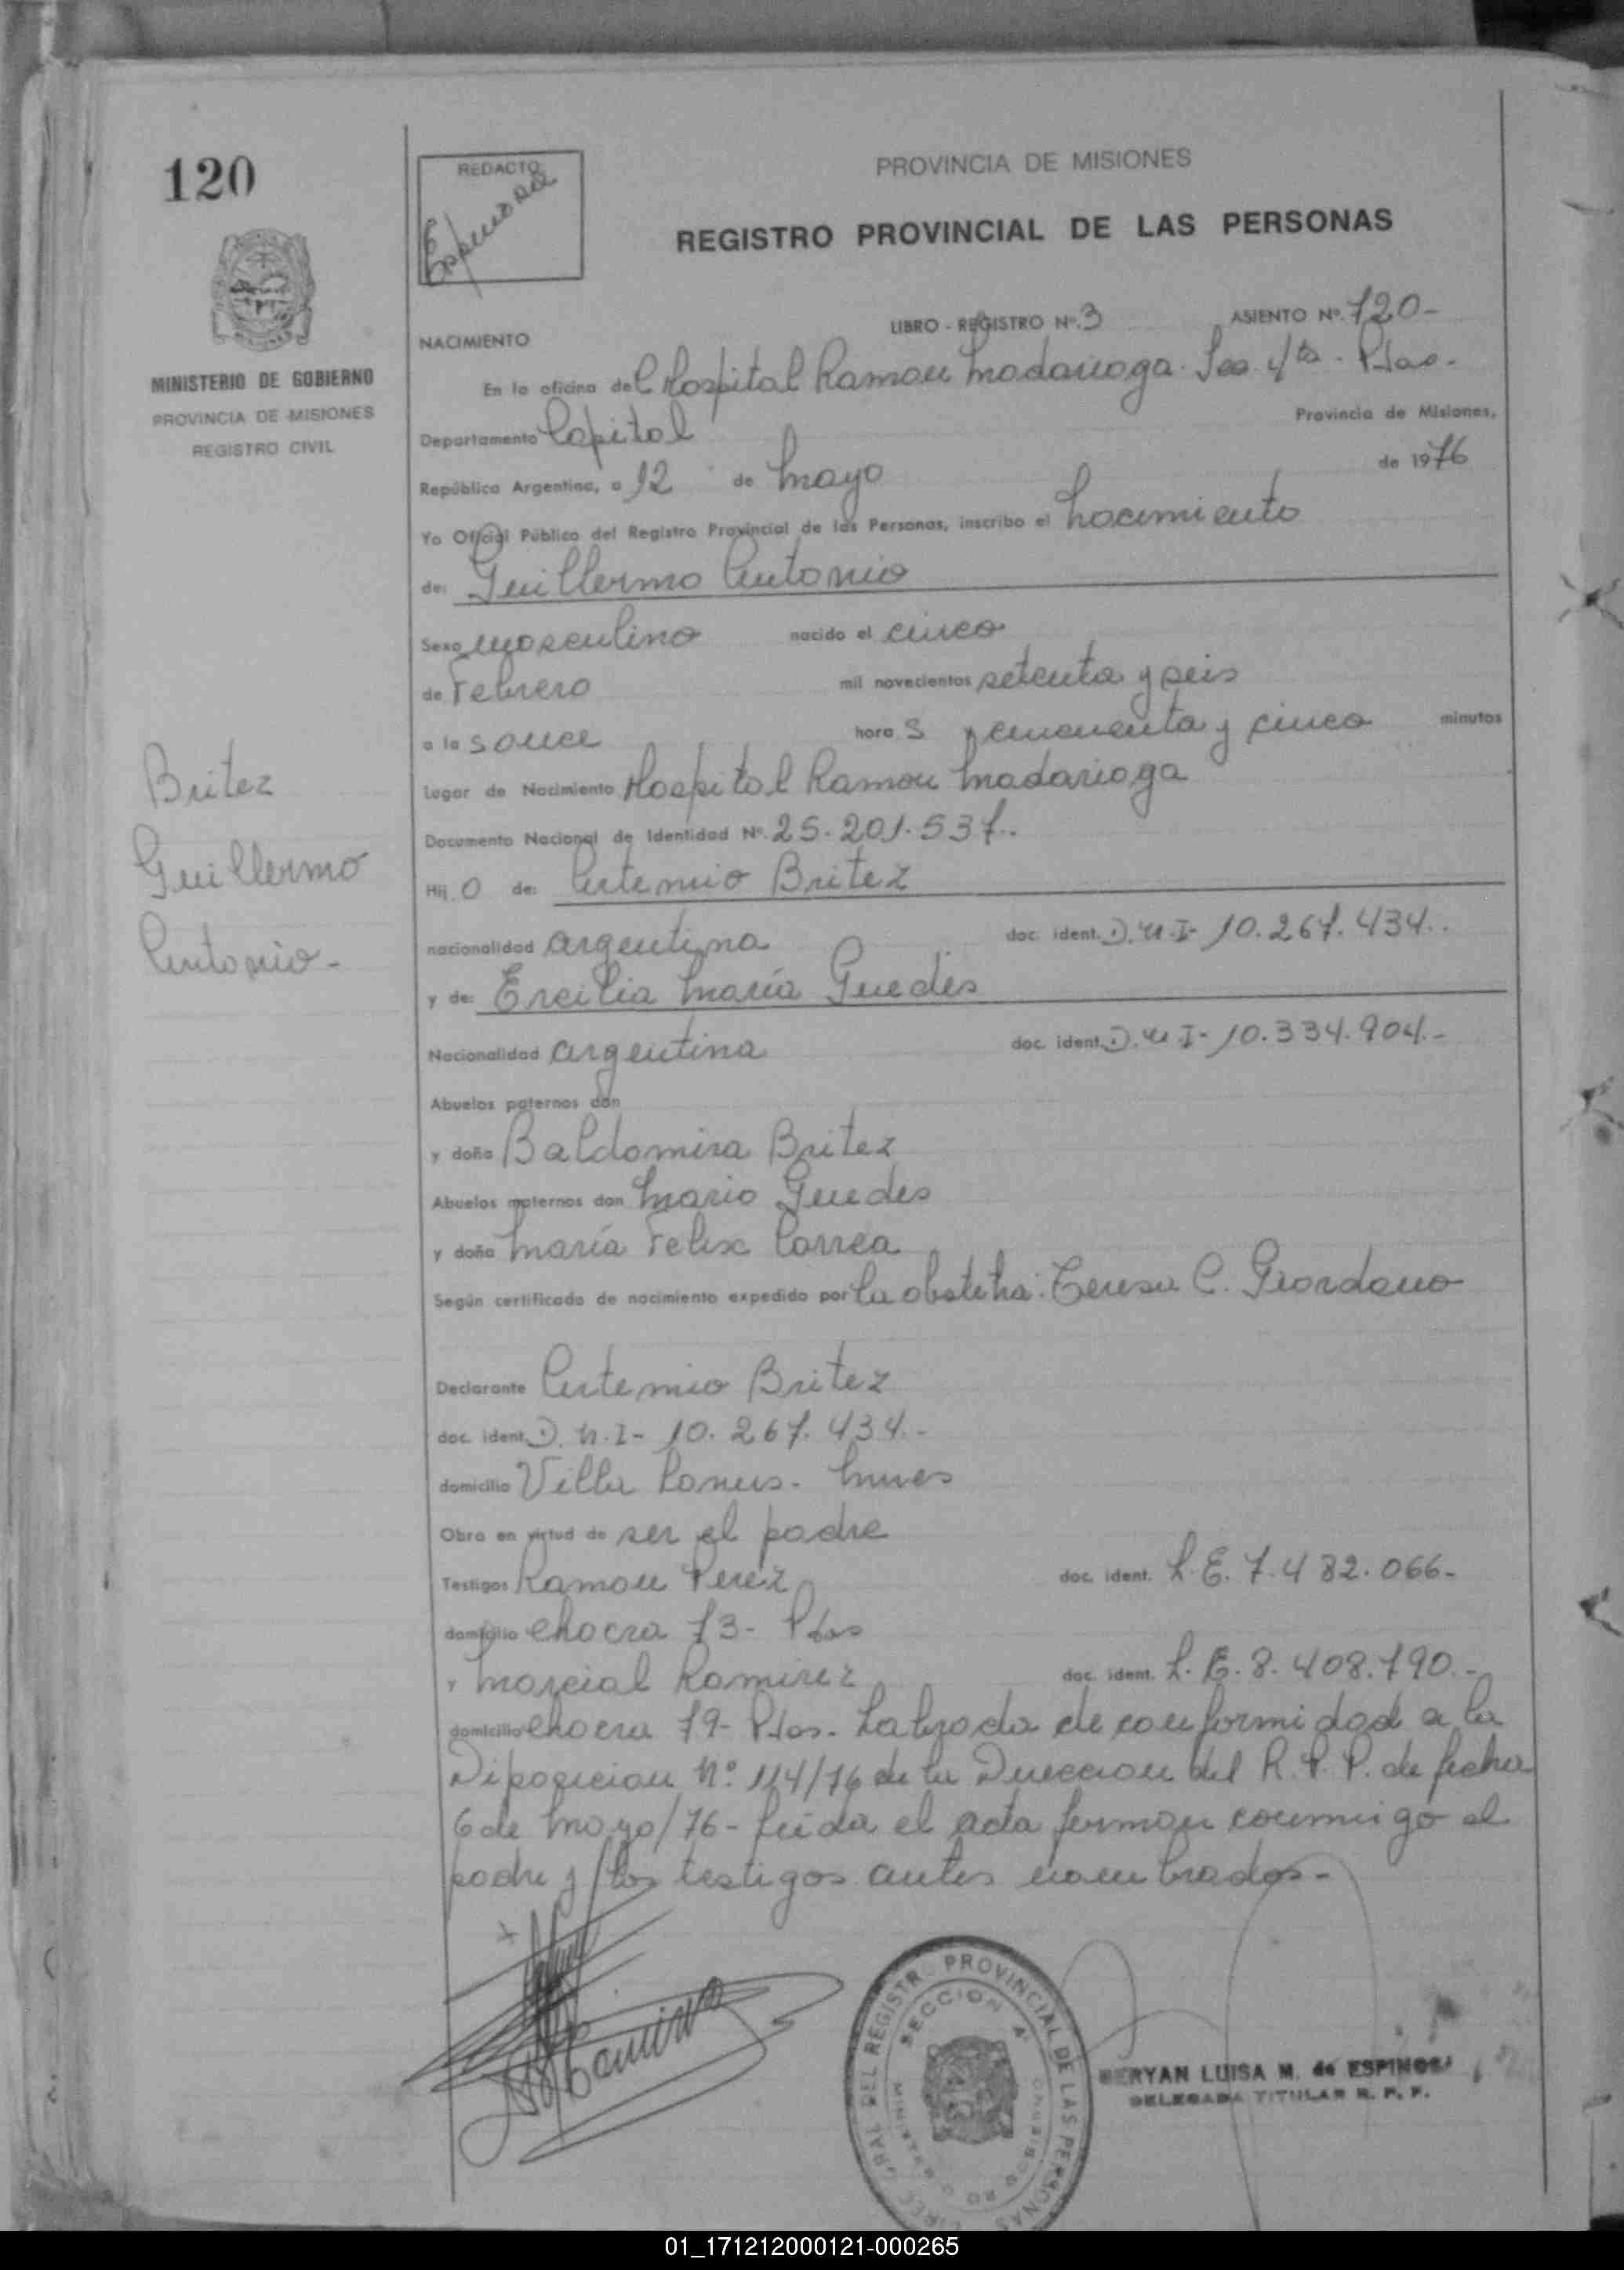 120
REDACTO
Espinosa
PROVINCIA DE MISIONES
REGISTRO PROVINCIAL DE LAS PERSONAS
MINISTERIO DE GOBIERNO
PROVINCIA DE MISIONES
REGISTRO CIVIL
LIBRO - REGISTRO Nº. 3 ASIENTO Nº. 720-
NACIMIENTO
En la oficina del Hospital Ramon Madariaga. Sec. 4ta - Pdas.
Departamento Capital Provincia de Misiones,
República Argentina, a 12 de Mayo de 1976
Yo Oficial Público del Registro Provincial de las Personas, inscribo el Nacimiento
de: Guillermo Antonio
Sexo masculino nacido el cinco
de Febrero mil novecientos setenta y seis
a las once horas y cincuenta y cinco minutos
Lugar de Nacimiento Hospital Ramon Madariaga
Documento Nacional de Identidad Nº. 25.201.537.-
Britez
Guillermo
Antonio-
Hijo de: Artemio Britez
nacionalidad argentina doc. ident. D.N.I- 10.267.434.-
y de: Ercilia María Guedes
Nacionalidad argentina doc. ident. D.N.I- 10.334.904.-
Abuelos paternos don
y doña Baldomira Britez
Abuelos maternos don Mario Guedes
y doña María Felix Correa
Según certificado de nacimiento expedido por la obstetra: Teresa C. Giordano
Declarante Artemio Britez
doc. ident. D.N.I- 10.267.434.-
domicilio Villa Lanus- Mnes
Obra en virtud de ser el padre
Testigos Ramon Perez doc. ident. L.E. 7.482.066-
domicilio chacra 73- Pdas
Y Marcial Ramirez doc. ident. L.E. 8.408.790.-
domicilio chacra 79- Pdas- Labrada de conformidad a la
Diposicion Nº 114/76 de la Direccion del R.P.P. de fecha
6 de Mayo/76- leida el acta firman conmigo el
padre y los testigos antes nombrados-
GRAL DEL REGISTRO PROVINCIAL DE LAS PERSONAS
SECCION 4ª
BERYAN LUISA M. de ESPINOSA
DELEGADA TITULAR R. P. P.
01_171212000121-000265